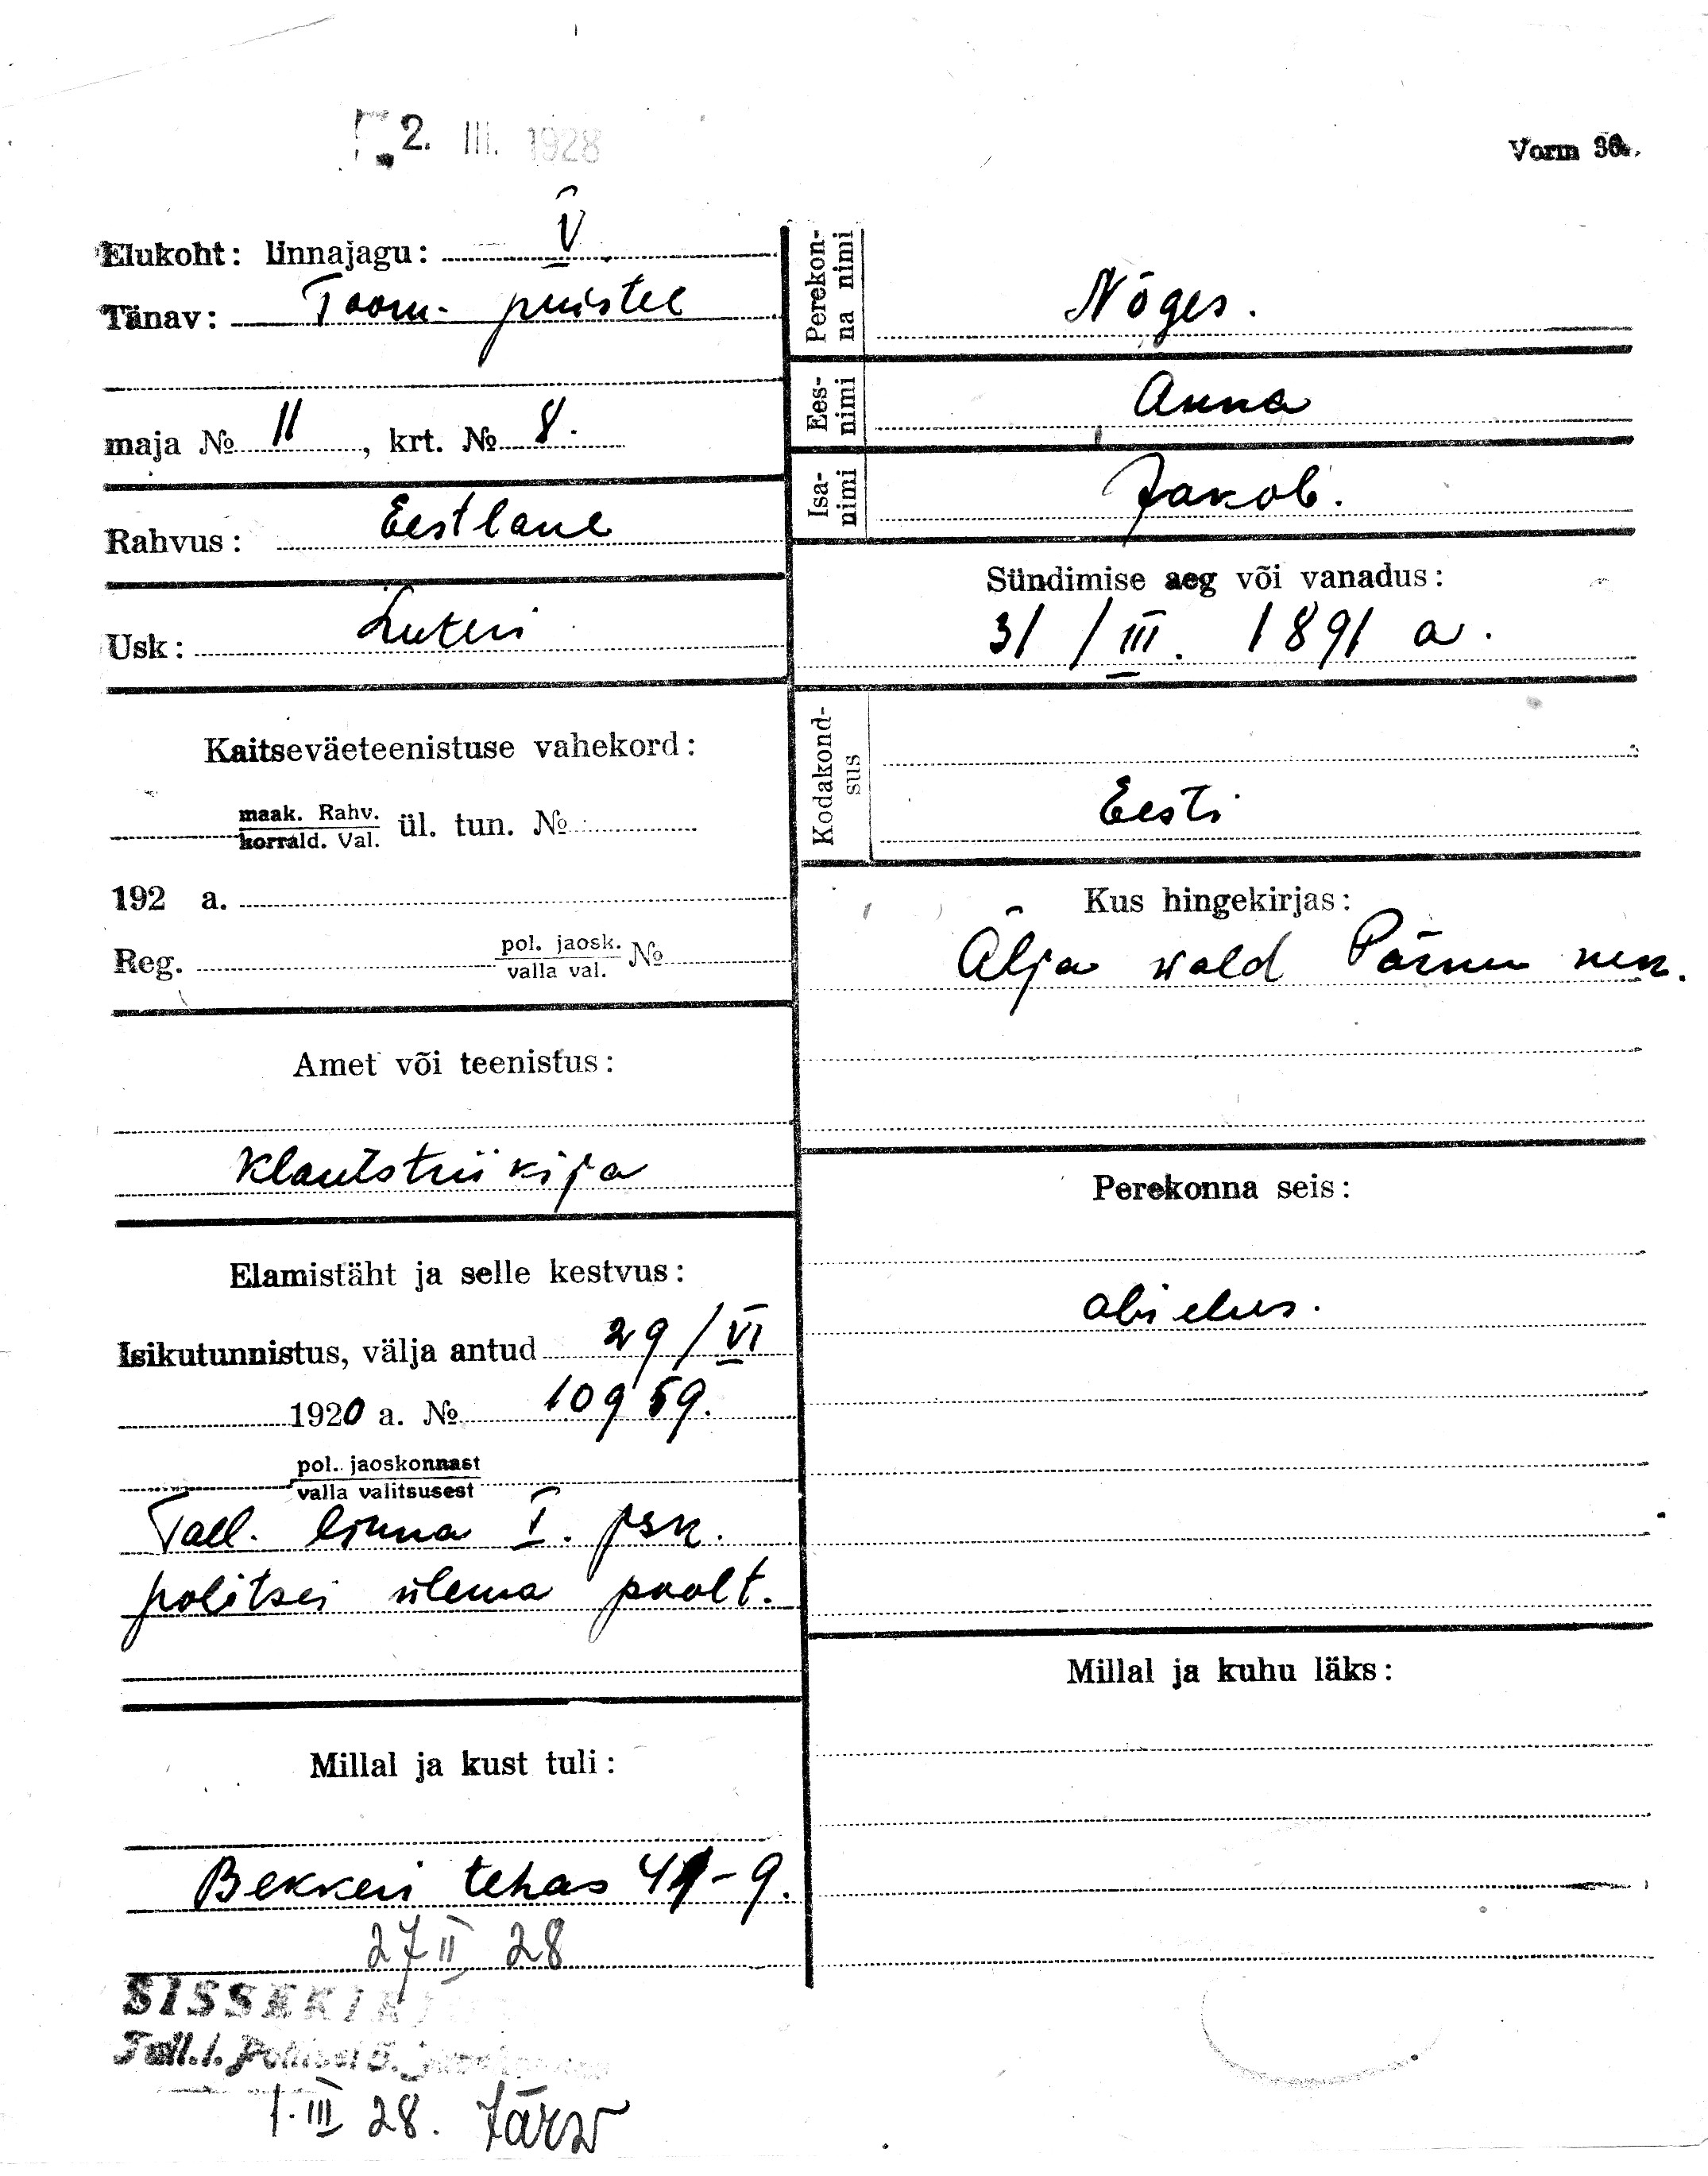 2. III. 1928
Vorm 36.
Elukoht: linnajagu: V
Tänav: Toom- puistee
maja № 11, krt. № 8.
Rahvus: Eestlane
Usk: Luteri
Kaitseväeteenistuse vahekord:
maak. Rahv.
korrald. Val. ül. tun. №
192 a.
Reg. pol. jaosk. №
valla val.
Amet või teenistus:
Klaasstriikija
Elamistäht ja selle kestvus:
Isikutunnistus, välja antud 29/VI
1920 a. № 10959.
pol. jaoskonnast
valla valitsusest
Tall. linna I. jsk.
politsei ülema poolt.
Millal ja kust tuli:
Bekkeri tehas 41-9.
27 II 28
SISSEKIRJ
Tall. l. Politsei 5.
1. III 28. Järw
Perekon-
na nimi
Nõges.
Ees-
nimi
Anna
Isa-
nimi
Jakob.
Sündimise aeg või vanadus:
31/III. 1891 a.
Kodakond-
sus
Eesti
Kus hingekirjas:
wald Pärnu
Perekonna seis:
abielus.
Millal ja kuhu läks: